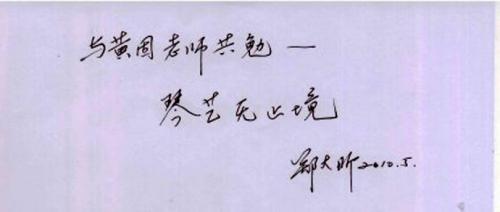 与黄周老师共勉—
琴艺无止境
郑大昕 2010.5.